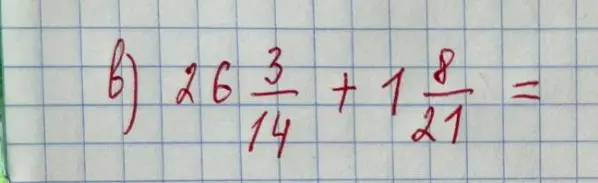 в) 26 3/14 + 1 8/21 =